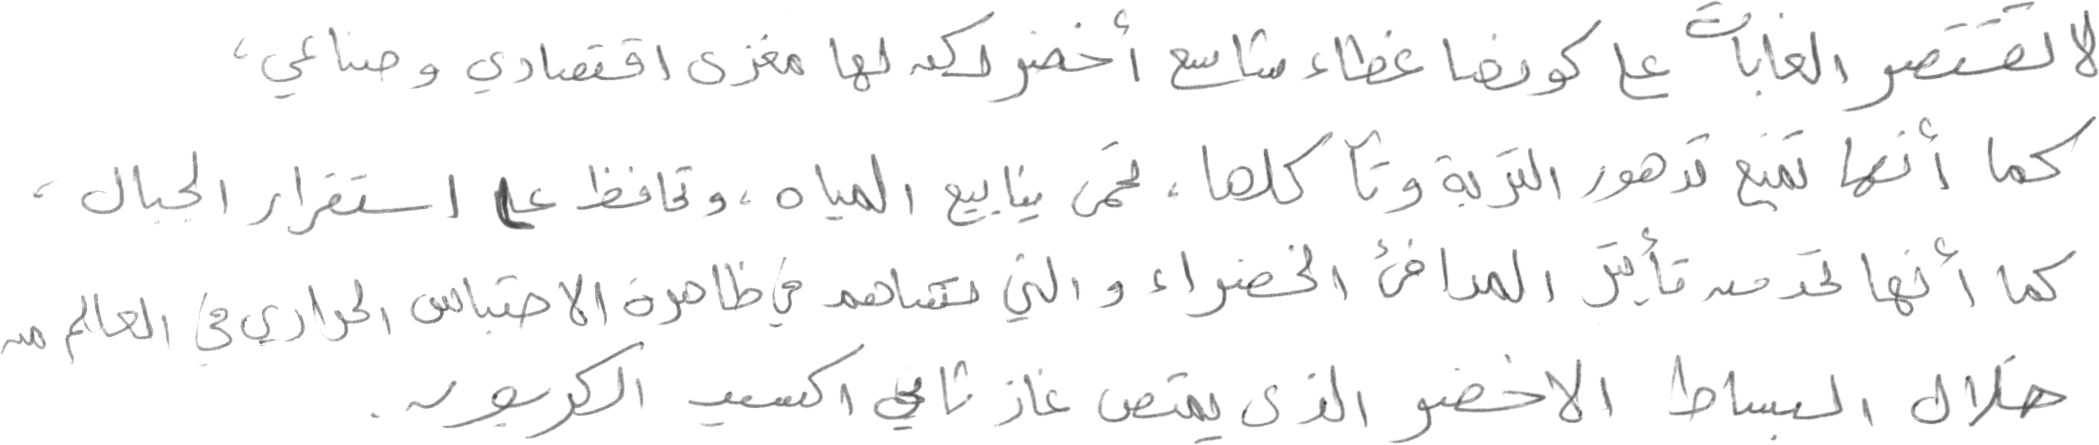 لا تقتصر الغابات على كونها غطاء شاسع أخضر لكن لها مغزى اقتصادي وصناعي،
كما أنها تمنع تدهور التربة وتآكلها، تحمى ينابيع المياه، وتحافظ على استقرار الجبال،
كما أنها تحد من تأثير المدافئ الخضراء والتي تساهم في ظاهرة الاحتباس الحراري في العالم من
خلال البساط الاخضر الذى يمتص غاز ثاني اكسيد الكربون.